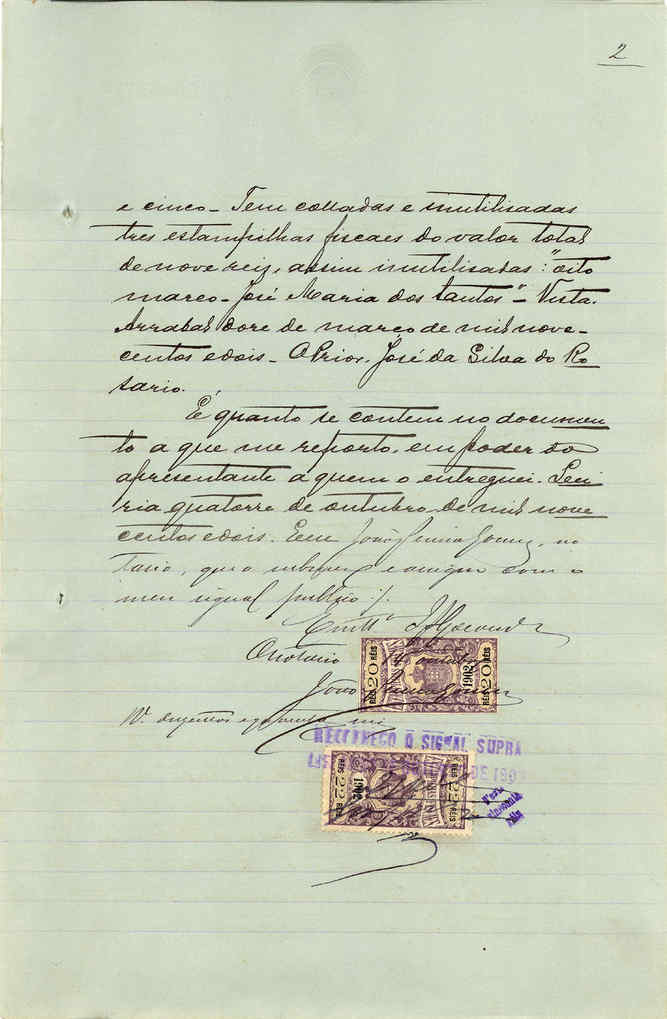 2
e cinco - Tem colladas e inutilisadas
tres estampilhas fiscaes do valor total
de nove reis, assim inutilisadas: "oito
março - José Maria dos Santos" - Visto.
Arrabal doze de março de mil nove-
centos e dois - O Prior, José da Silva do Ro
sario.
É quanto se contem no documen
to a que me reporto, em poder do
apresentante a quem o entreguei. Lei
ria quatorze de outubro de mil nove
centos e dois. E eu João
tario, que o e assigno com o
meu signal publico
O notario
João
Nº duzentos e quarenta
RÉIS 20 RÉIS 1902 RÉIS 20 RÉIS
RECONHEÇO O SIGNAL SUPRA
DE 190
RÉIS RÉIS 1902 RÉIS RÉIS